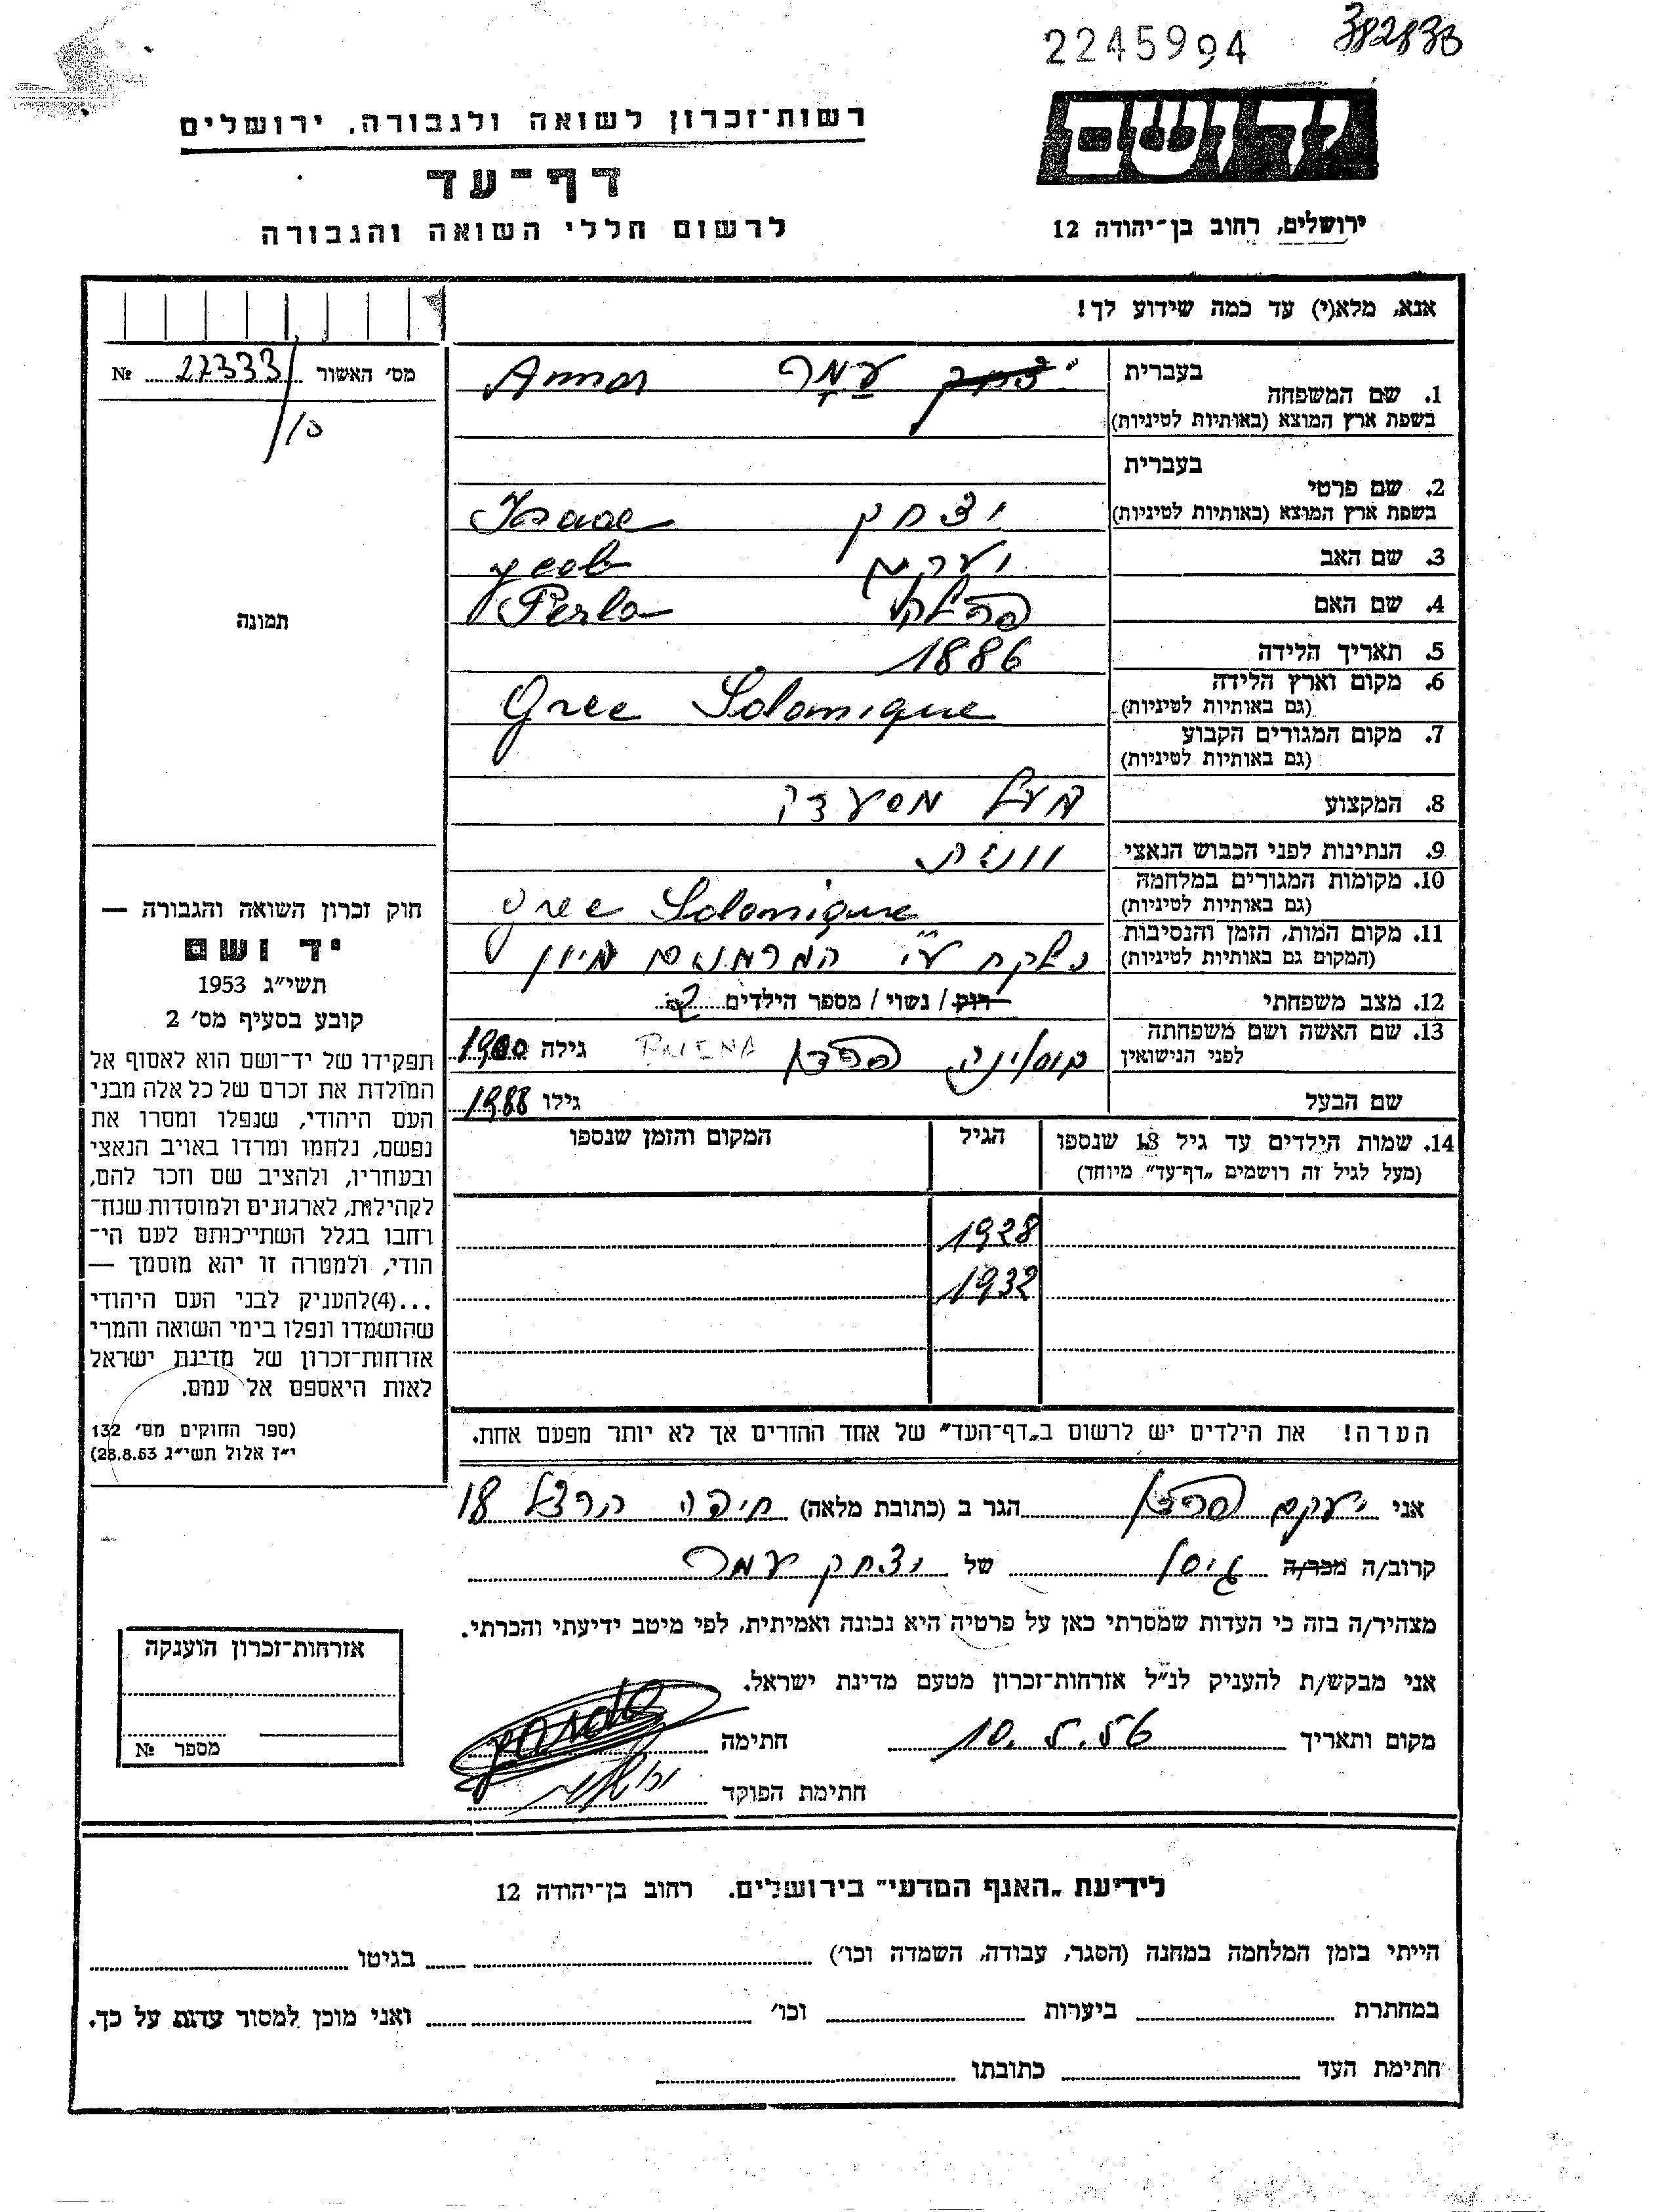 2245994
382833
יד ושם
רשות־זכרון לשואה ולגבורה, ירושלים
דף־עד
לרשום חללי השואה והגבורה
ירושלים, רחוב בן־יהודה 12
אנא, מלא(י) עד כמה שידוע לך!
מס' האשור 22333 №
תמונה
חוק זכרון השואה והגבורה —
יד ושם
תשי״ג 1953
קובע בסעיף מס' 2
תפקידו של יד־ושם הוא לאסוף אל
המולדת את זכרם של כל אלה מבני
העם היהודי, שנפלו ומסרו את
נפשם, נלחמו ומרדו באויב הנאצי
ובעוזריו, ולהציב שם וזכר להם,
לקהילות, לארגונים ולמוסדות שנח־
רחבו בגלל השתייכותם לעם הי־
הודי, ולמטרה זו יהא מוסמך —
...(4)להעניק לבני העם היהודי
שהושמדו ונפלו בימי השואה והמרי
אזרחות־זכרון של מדינת ישראל
לאות היאספם אל עמם.
(ספר החוקים מס' 132
י״ז אלול תשי״ג 28.8.53)
1. שם המשפחה בעברית עמר Ammar
בשפת ארץ המוצא (באותיות לטיניות)
2. שם פרטי בעברית
בשפת ארץ המוצא (באותיות לטיניות) יצחק
3. שם האב יעקב
4. שם האם Perla
5. תאריך הלידה 1886
6. מקום וארץ הלידה Grec Solonique
(גם באותיות לטיניות)
7. מקום המגורים הקבוע
(גם באותיות לטיניות)
8. המקצוע בעל מסעדה
9. הנתינות לפני הכבוש הנאצי יוונית
10. מקומות המגורים במלחמה Grec Solonique
(גם באותיות לטיניות)
11. מקום המות, הזמן והנסיבות נלקח ע״י הגרמנים מיוון
(המקום גם באותיות לטיניות)
12. מצב משפחתי רוק / נשוי / מספר הילדים 2
13. שם האשה ושם משפחתה פרדו גילה 1900
לפני הנישואין
שם הבעל גילו 1988
14. שמות הילדים עד גיל 18 שנספו הגיל המקום והזמן שנספו
(מעל לגיל זה רושמים „דף־עד״ מיוחד)
1928
1932
הערה! את הילדים יש לרשום ב„דף־העד״ של אחד ההורים אך לא יותר מפעם אחת.
אני יעקב פרדו הגר ב (כתובת מלאה) חיפה הרצל 18
קרוב/ה מכר/ה גיסו של יצחק עמר
מצהיר/ה בזה כי העדות שמסרתי כאן על פרטיה היא נכונה ואמיתית, לפי מיטב ידיעתי והכרתי.
אני מבקש/ת להעניק לנ״ל אזרחות־זכרון מטעם מדינת ישראל.
מקום ותאריך 10.5.56 חתימה
חתימת הפוקד
אזרחות־זכרון הוענקה
מספר №
לידיעת „האגף המדעי״ בירושלים. רחוב בן־יהודה 12
הייתי בזמן המלחמה במחנה (הסגר, עבודה, השמדה וכו') בגיטו
במחתרת ביערות וכו' ואני מוכן למסור עדות על כך.
חתימת העד כתובתו